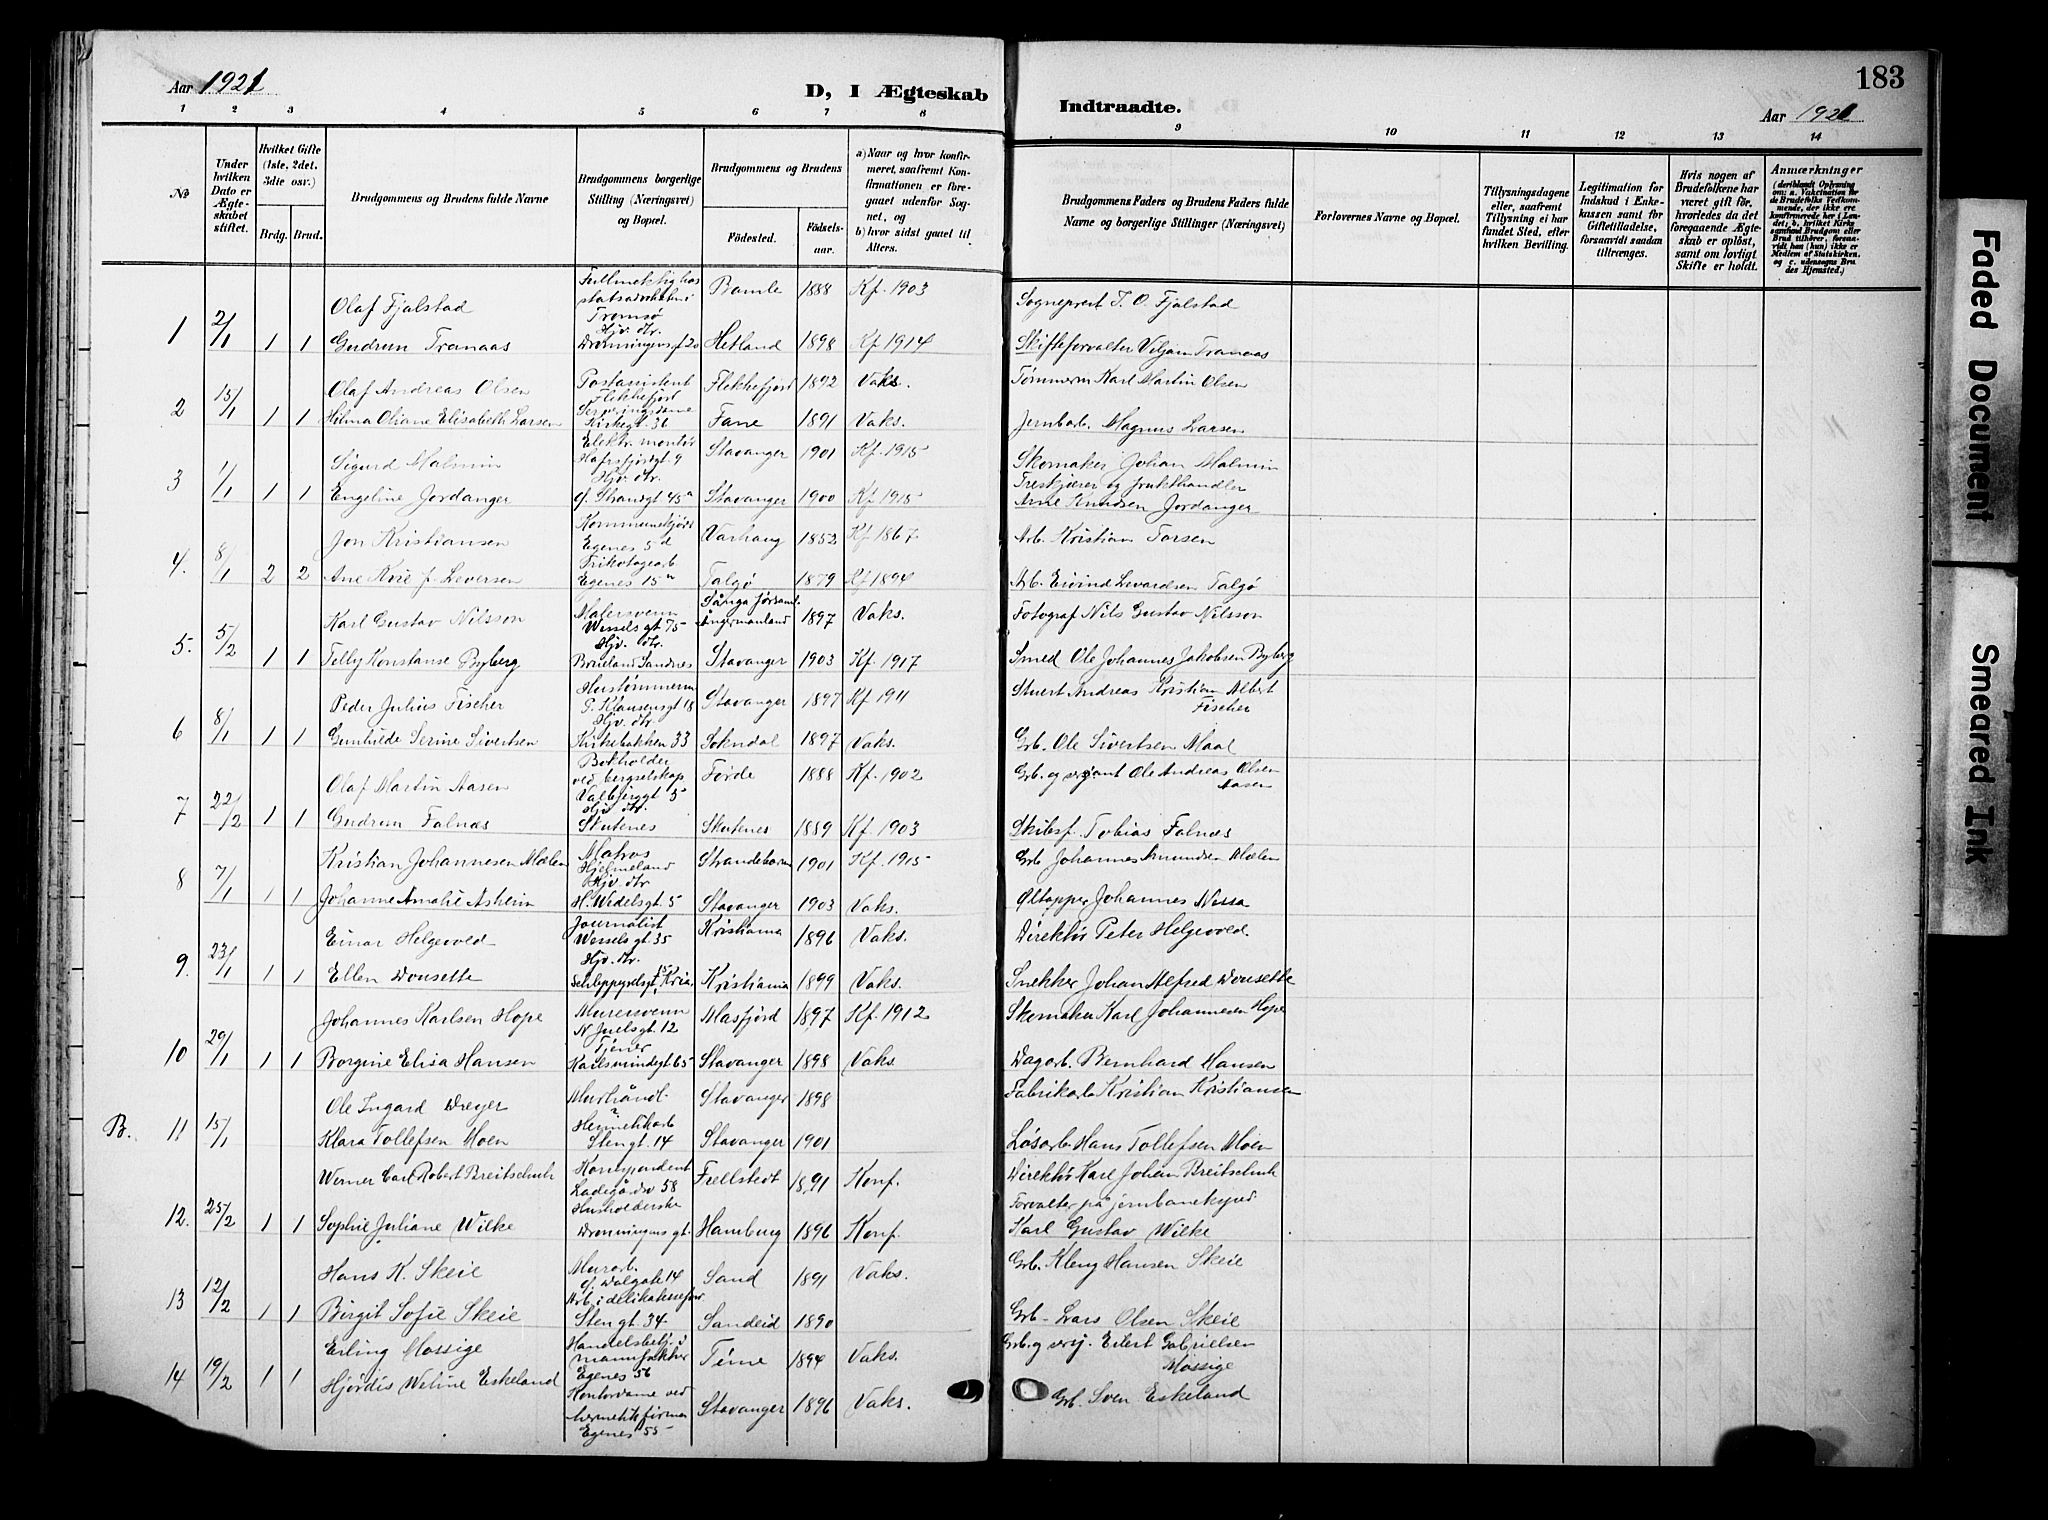 Aar 1921
D, I Ægteskab
Indtraadte.
183
Aar 1921
1 2 3 4 5 6 7 8 9 10 11 12 13 14
№
Under hvilken Dato er Ægteskabet stiftet.
Hvilket Gifte (1ste, 2det, 3die osv.)
Brdg. Brud.
Brudgommens og Brudens fulde Navne
Brudgommens borgerlige Stilling (Næringsvei) og Bopæl.
Brudgommens og Brudens
Fødested.
Fødselsaar.
a) Naar og hvor konfirmeret, saafremt Konfirmationen er foregaaet udenfor Sognet, og
b) hvor sidst gaaet til Alters.
Brudgommens Faders og Brudens Faders fulde Navne og borgerlige Stillinger (Næringsvei)
Forlovernes Navne og Bopæl.
Tillysningsdagene eller, saafremt Tillysning ei har fundet Sted, efter hvilken Bevilling.
Legitimation for Indskud i Enkekassen samt for Giftetilladelse, forsaavidt saadan tiltrænges.
Hvis nogen af Brudefolkene har været gift før, hvorledes da det foregaaende Ægteskab er opløst, samt om lovligt Skifte er holdt.
Anmærkninger
(deriblandt Oplysning om: a. Vakcination for de Brudefolks Vedkommende, der ikke ere konfirmerede her i Landet; b. hvilket Kirkesamfund Brudgom eller Brud tilhører, forsaavidt han (hun) ikke er Medlem af Statskirken, og c. udensogns Brudes Hjemsted.)
Olaf Fjalstad Fullmektig hos statsadvokaten i Tromsø Bamle 1888 Kf. 1903 Sogneprest T. O. Fjalstad
1 2/1 1 1 Gudrun Tranaas Hjv. dtr. Dronningensgt 20 Hetland 1898 Kf 1914 Skifteforvalter Viljam Tranaas
Olaf Andreas Olsen Postassistent Flekkefjord Flekkefjord 1892 Vaks. Tømmerm Karl Martin Olsen
2 15/1 1 1 Hilma Oliane Elisabeth Larsen Serveringsdame Kirkegt. 36 Fane 1891 Vaks. Jernbarb. Magnus Larsen
Sigurd Malmin Elektr. montør Hafrsfjordgt. 9 Stavanger 1901 Kf. 1915 Skomaker Johan Malmin
3 1/1 1 1 Engeline Jordanger Hjv. dtr. ø. Strandgt 45a Stavanger 1900 Kf. 1915 Treskjærer og frukthandler Arne Knudsen Jordanger
Jon Kristiansen Kommunekjører Egenes 5d Varhaug 1852 Kf 1867 Arb. Kristian Torsen
4. 8/1 2 2 Ane Kvie f. Leversen Trikotagearb Egenes 15a Talgø 1879 Kf 1894 Arb. Eivind Levardsen Talgø
Karl Gustav Nilsson Malersvenn Wessels gt 75 Sånga forsaml. Ångermanland 1897 Vaks. Fotograf Nils Gustav Nilsson
5. 5/2 1 1 Telly Konstanse Byberg Hjv. dtr. Brueland Sandnes Stavanger 1903 Kf. 1917 Smed Ole Johannes Jakobsen Byberg
Peder Julius Fischer Hustømmerm P. Klausensgt 18 Stavanger 1897 Kf 1911 Stuert Andreas Kristian Albert Fischer
6 8/1 1 1 Gunhilde Serine Sivertsen Hjv. dtr. Kirkebakken 33 Sokndal 1897 Vaks. Grb. Ole Sivertsen Maal
Olaf Martin Aasen Bokholder ved bergselskap Valbjerggt 5 Førde 1888 Kf. 1902 Grb. og sersjant Ole Andreas Olsen Aasen
7 22/2 1 1 Gudrun Falnæs Hjv. dtr. Skutenes Skutenes 1889 Kf. 1903 Skibsf. Tobias Falnæs
Kristian Johannesen Mælen Matros Hjelmeland Strandebarm 1901 Kf. 1915 Grb. Johannes Amundsen Mælen
8 7/1 1 1 Johanne Amalie Asheim Hjv. dtr H. Wedelsgt. 5 Stavanger 1903 Vaks. Øltapper Johannes Nessa
Einar Helgevold Journalist Wessels gt. 35 Kristiania 1896 Vaks. Direktør Peter Helgevold
9. 23/1 1 1 Ellen Dousette Hjv. dtr. Schleppegrelsgt. Kria. Kristiania 1899 Vaks. Snekker Johan Alfred Dousette
Johannes Karlsen Hope Murersvenn N. Juelsgt. 12 Masfjord 1897 Kf. 1912 Skomaker Karl Johannesen Hope
10 29/1 1 1 Borgine Elisa Hansen Tjener Karlsmindegt 65 Stavanger 1898 Vaks. Dagarb. Bernhard Hansen
Ole Ingard Dreyer Murhåndl. Stavanger 1898 Fabrikarb Kristian Kristiansen
B. 11 15/1 Klara Tollefsen Moen Hermetikarb Stengt. 14 Stavanger 1901 Løsarb Hans Tollefsen Moen
Werner Carl Robert Breitschuh Korrespondent Ladegårdsv 58 Frellstedt 1891 Konf. Direktør Karl Johan Breitschuh
12. 25/2 1 1 Sophie Juliane Wilke Husholderske Dronningens gt. Hamburg 1896 Konf. Forvalter på jernbanekyved. Karl Gustav Wilke
Hans K. Skeie Murarb. ø. Dalgate 14 Sand 1891 Vaks. Grb. Kleng Hansen Skeie
13 12/2 1 1 Birgit Sofie Skeie Arb. i delikatesseforr Stengt 34. Sandeid 1890 Grb. Lars Olsen Skeie
Erling Mossige Handelsbetj. i manufaktur Egenes 56 Time 1894 Vaks. Grb. og sersj. Eilert Gabrielsen Mossige
14 19/2 1 1 Hjørdis Weline Eskeland Kontordame ved hermetikfirma Egenes 55 Stavanger 1896 Vaks. Grb. Sven Eskeland
Faded Document
Smeared Ink